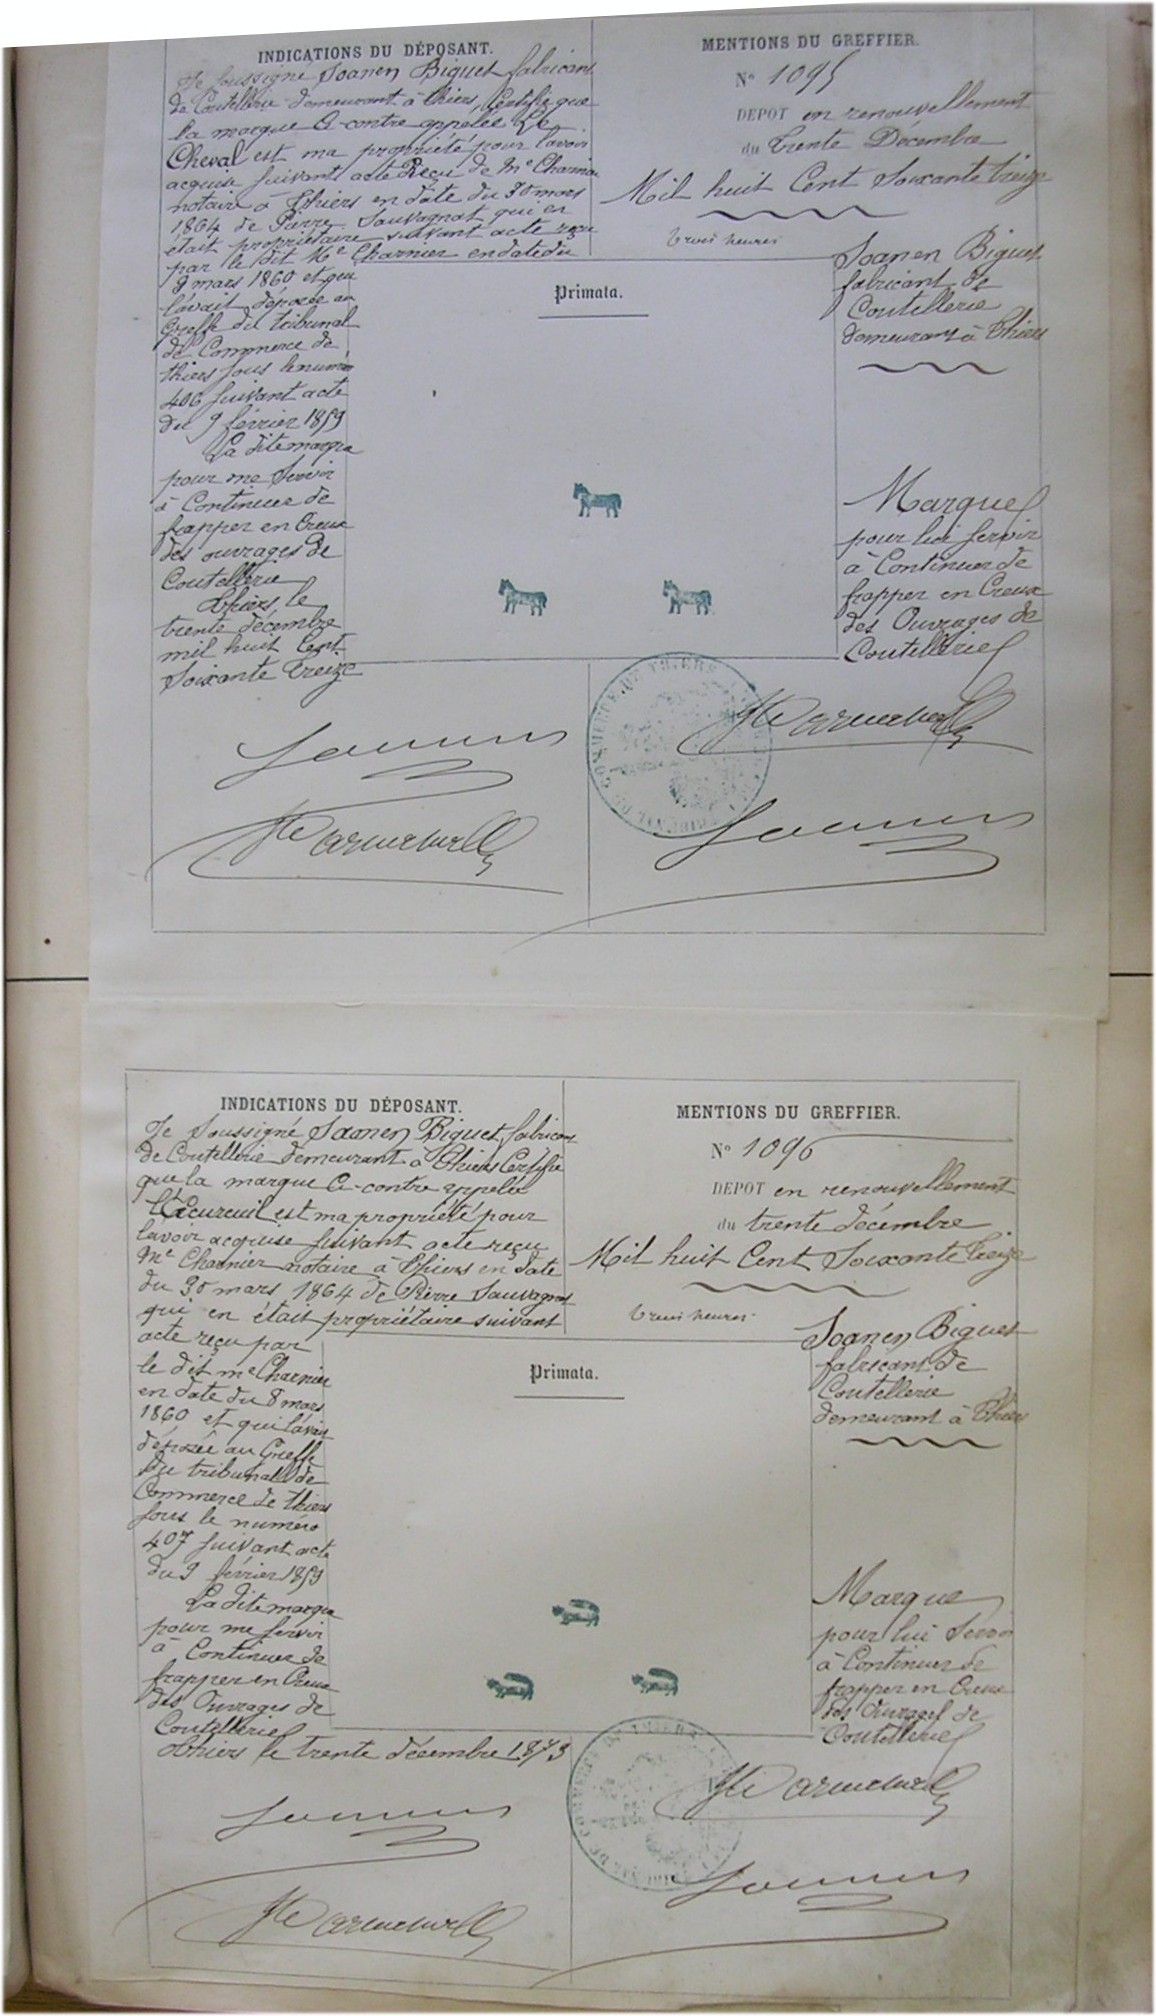 INDICATIONS DU DÉPOSANT.
Je soussigné Soanen Biguet fabricant
de Coutellerie demeurant à Thiers, Certifie que
la marque Ci-contre appelée Le
Cheval est ma propriété pour l'avoir
acquise suivant acte Reçu de Me Charnier
notaire à Thiers en date du 30 mars
1864 de Pierre Sauvagnat qui en
était propriétaire suivant acte reçu
par le dit Me Charnier en date du
8 mars 1860 et qui
l'avait déposée au
Greffe du tribunal
de Commerce de
thiers sous le numéro
406 suivant acte
du 9 février 1859
La dite marque
pour me Servir
à Continuer de
frapper en Creux
des ouvrages de
Coutellerie
Thiers, le
trente décembre
mil huit Cent
Soixante Treize
MENTIONS DU GREFFIER.
N° 1095
DEPOT en renouvellement
du Trente Decembre
Mil huit Cent Soixante treize
trois heures
Primata.
Soanen Biguet
fabricant de
Coutellerie
demeurant à Thiers
Marque
pour lui servir
à Continuer de
frapper en Creux
des Ouvrages de
Coutellerie
Soanen
Soanen
INDICATIONS DU DÉPOSANT.
Je Soussigné Soanen Biguet, fabricant
de Coutellerie demeurant à Thiers Certifie
que la marque Ci-contre appelée
l'Écureuil est ma propriété pour
l'avoir acquise suivant acte reçu
Me Charnier notaire à Thiers en date
du 30 mars 1864 de Pierre Sauvagnat
qui en était propriétaire suivant
acte reçu par
le dit me Charnier
en date du 8 mars
1860 et qui l'avait
déposée au Greffe
du tribunal de
Commerce de thiers
sous le numéro
407 suivant acte
du 9 février 1859
La dite marque
pour me servir
à Continuer de
frapper en Creux
des Ouvrages de
Coutellerie
Thiers le trente décembre 1873
MENTIONS DU GREFFIER.
N° 1096
DEPOT en renouvellement
du trente décembre
Mil huit Cent Soixante Treize
trois heures
Primata.
Soanen Biguet
fabricant de
Coutellerie
demeurant à Thiers
Marque
pour lui Servir
à Continuer de
frapper en Creux
des Ouvrages de
Coutellerie
Soanen
Soanen